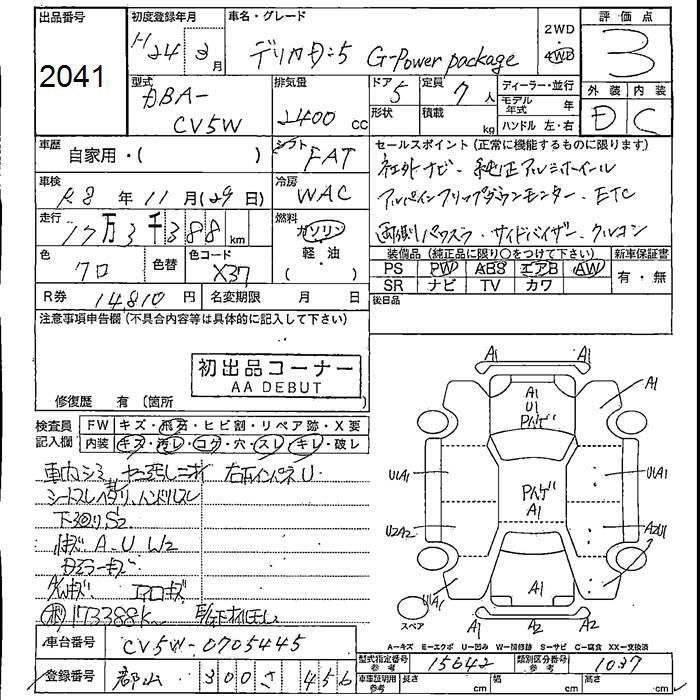 出品番号
2041
初度登録年月
H24 2月
車名・グレード
デリカD:5 G-Power package
2WD
・
4WD
評価点
3
型式
DBA-
CV5W
排気量
2400 cc
ドア
5
定員
7人
形状
積載
kg
ディーラー・並行
モデル年式 年
ハンドル 左・右
外装
内装
D
C
車歴
自家用・( )
シフト
FAT
セールスポイント(正常に機能するものに限ります)
社外ナビ・純正アルミホイール
アルパインフリップダウンモニター・ETC
両側パワスラ・サイドバイザー・クルコン
車検
R8年11月(29日)
冷房
WAC
走行
17万3千388km
燃料
ガソリン
軽・油
( )
色
クロ
色替
色コード
X37
装備品(純正品に限り○をつけて下さい)
新車保証書
PS PW ABS エアB AW
SR ナビ TV カワ
有・無
R券 14,810円
名変期限 月 日
後日品
注意事項申告欄(不具合内容等は具体的に記入して下さい)
初出品コーナー
AA DEBUT
修復歴 有(箇所
検査員
記入欄
FW キズ・飛石・ヒビ割・リペア跡・X要
内装 キズ・汚レ・コゲ・穴・スレ・キレ・破レ
車内シミ
ハンドルスレ
下回りS2
A・U W2
173388K
車台番号
CV5W-0705445
登録番号
郡山 300 さ 456
A1
A1
A1
A1
U1
Pハゲ
Pハゲ
A1
U1A1
U1A1
U2A2
A2U1
U1A1
A1
A1
A2
A2
スペア
A-キズ E-エクボ U-凹み W-補修跡 S-サビ C-腐食 XX-交換済
型式指定番号
参考
15642
類別区分番号
参考
1037
車庫証明用
参考
長さ cm
幅 cm
高さ cm